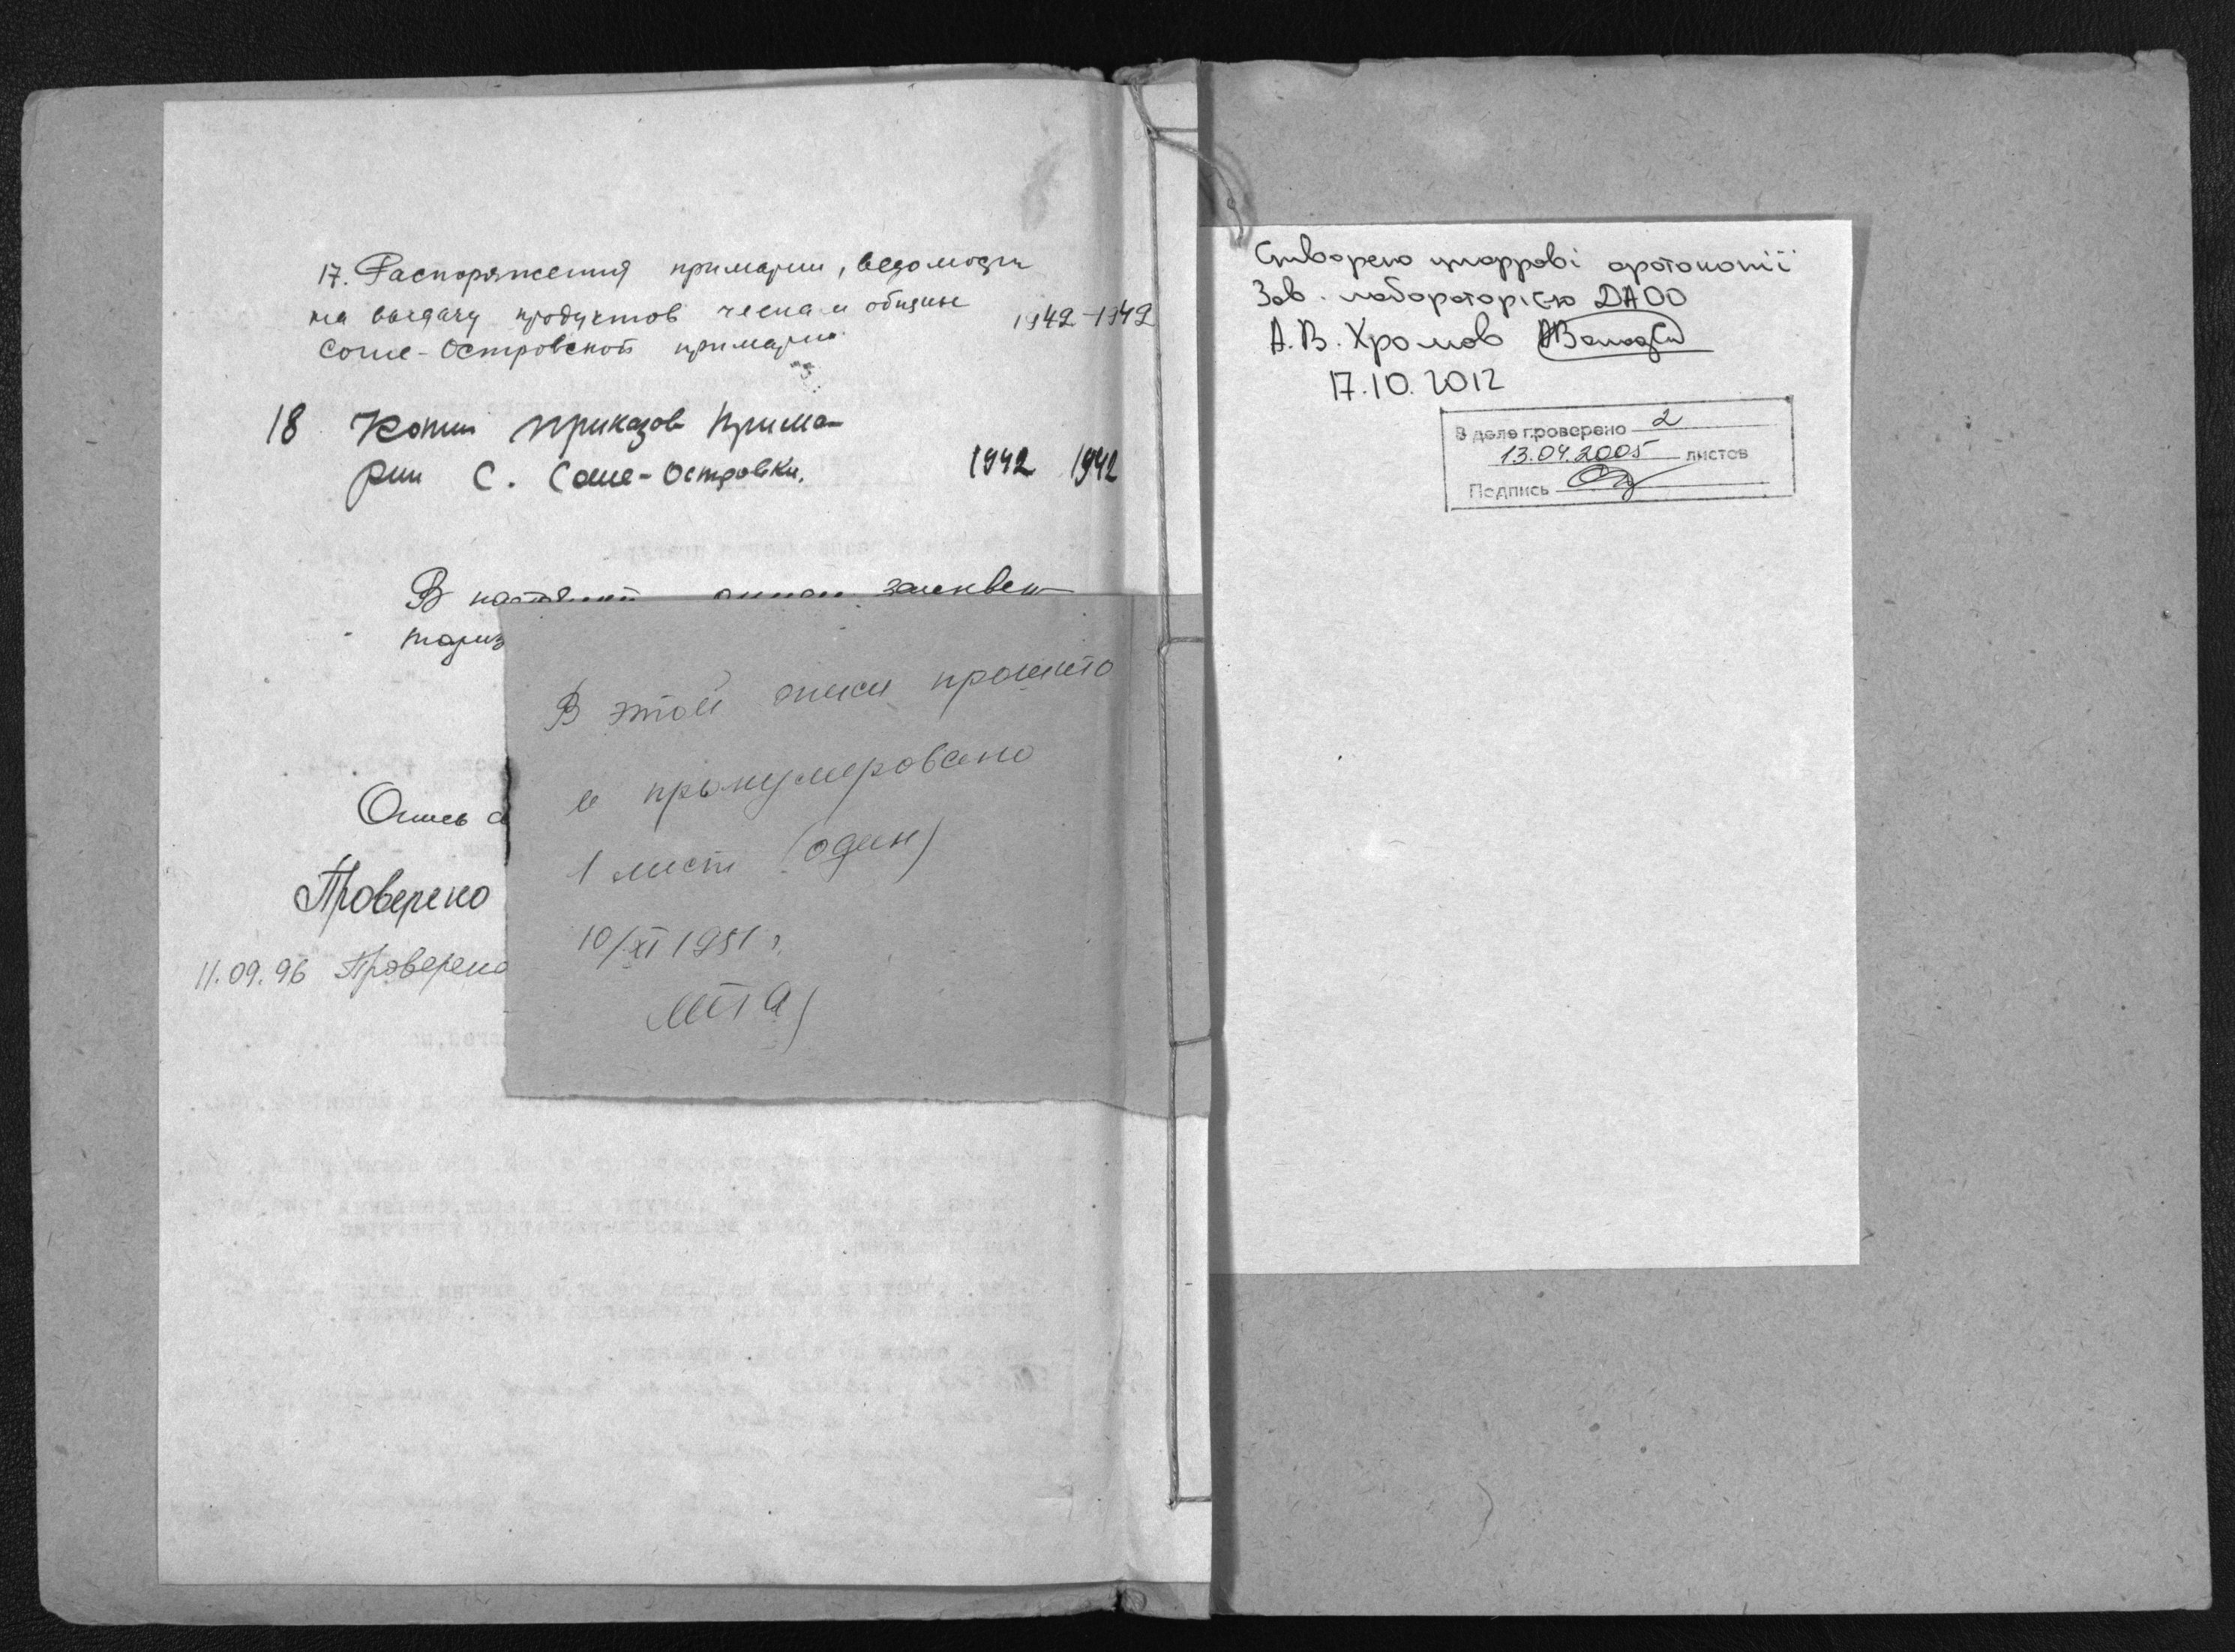 17. Распоряжения примарии, ведомости
на выдачу продуктов членам общины
Соше-Островской примарии
1942-1942
18 Копии приказов Прима-
рии С. Соше-Островки.
1942 1942
В настоящей описи заинвен-
тариз
Опись с
Проверено
11.09.96 Проверено
В этой описи прошито
и пронумеровано
1 лист (один)
10/XI 1951 г.
Створено цифрові фотокопії
Зав. лабораторією ДАОО
А.В. Хромов
17.10.2012
В деле проверено 2
13.04.2005 листов
Подпись